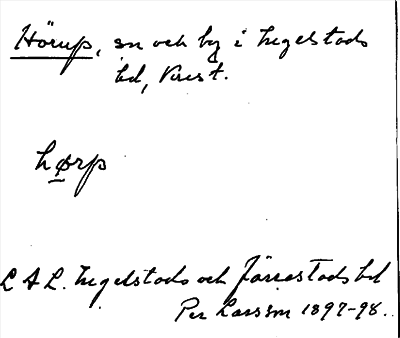 Hörup, sn och by i Ingelstads
hd, Krist.
hørp
L A L. Ingelstads och Järrestads hd
Per Larsson 1897-98.